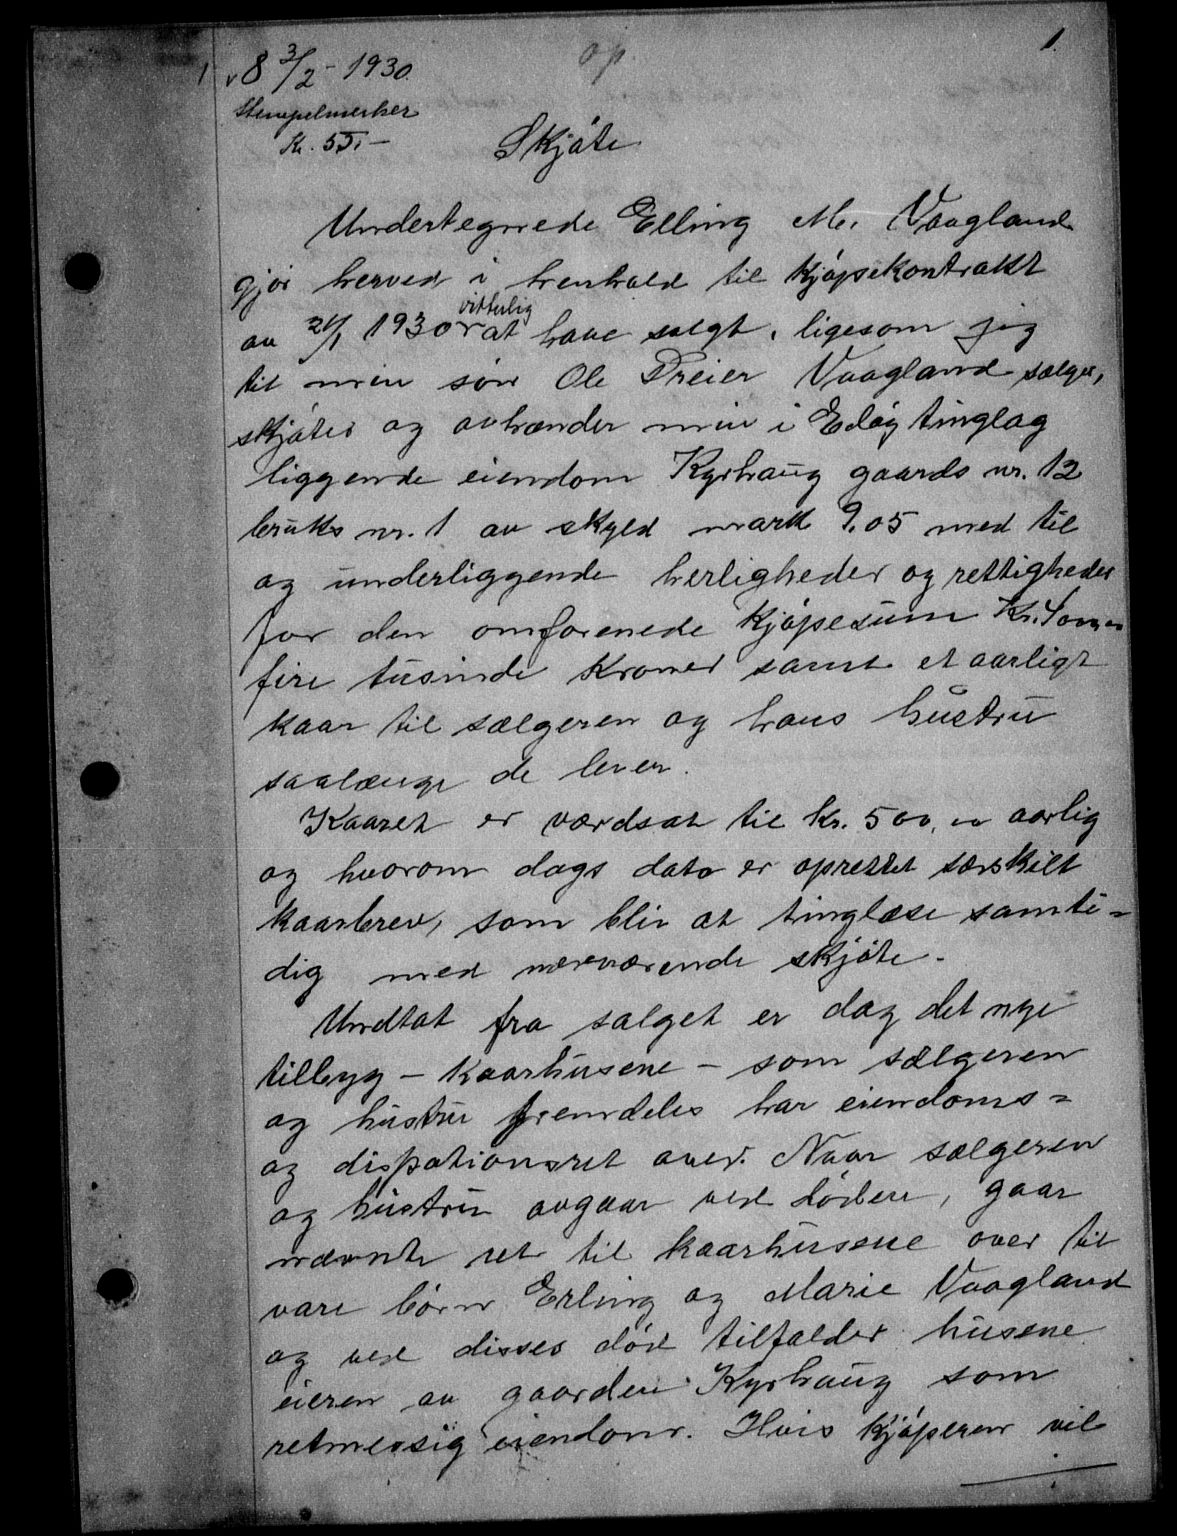 op.
1.
8 3/2 - 1930.
Stempelmerker
Kr. 55.-
Skjøte
Undertegnede Elling M. Vaagland
gjør herved i henhold til kjøpekontrakt
vitterlig
av 21/1 1930 at have solgt, ligesom jeg
til min søn Ole Preier Vaagland sælger,
skjøter og avhænder min i Edøy tinglag
liggende eiendom Kyrhaug gaards nr. 12
bruks nr. 1 av skyld mark 9.05 med til
og underliggende herligheder og rettigheder
for den omforenede kjøpesum Kr.
fire tusinde kroner samt et aarligt
kaar til sælgeren og hans hustru
saalænge de lever.
Kaaret er værdsat til kr. 500,00 aarlig
og hvorom dags dato er oprettet særskilt
kaarbrev, som blir at tinglæse samti=
dig med nærværende skjøte.
Undtat fra salget er dog det nye
tilbyg - kaarhusene - som sælgeren
og hustru fremdeles har eiendoms=
og dispationsret over. Naar sælgeren
og hustru avgaar ved døden, gaar
nævnte ret til kaarhusene over til
vare børn Erling og Marie Vaagland
og ved disses død tilfalder husene
eieren av gaarden Kyrhaug som
retmessig eiendom. Hvis kjøperen vil